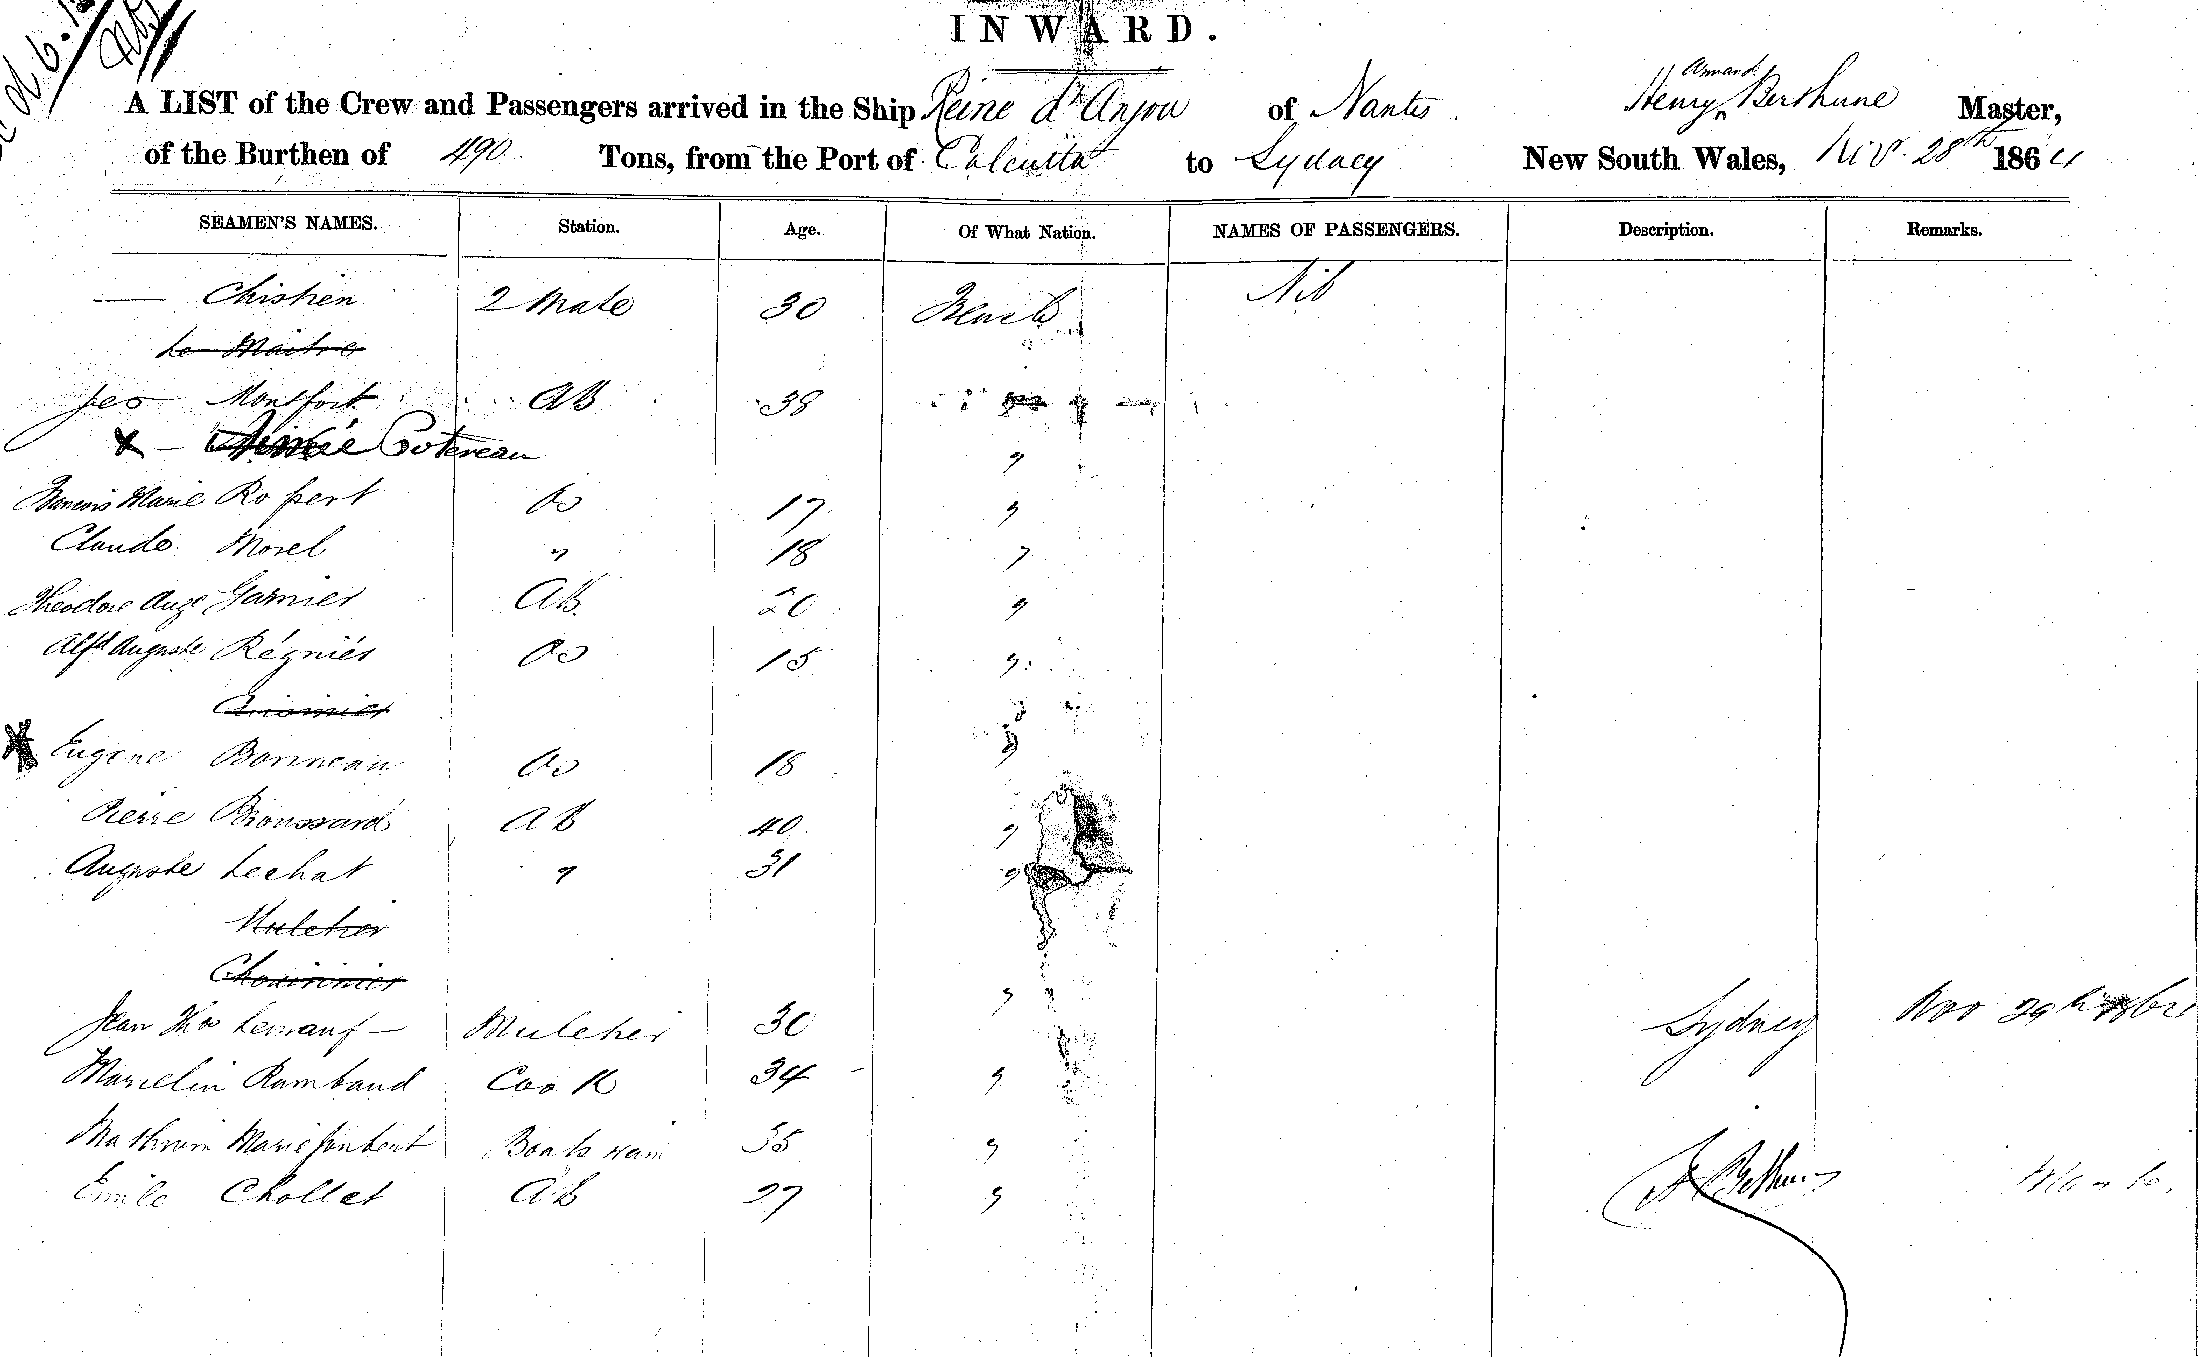 INWARD.
A LIST of the Crew and Passengers arrived in the Ship Reine d'Anjou of Nantes Henry Armand Berthune Master,
of the Burthen of 490 Tons, from the Port of Calcutta to Sydney New South Wales, Nov. 28th 1864
SEAMEN'S NAMES. Station. Age. Of What Nation. NAMES OF PASSENGERS. Description. Remarks.
— Chistien 2 Mate 30 French Nil
Le Maitre
Montfort AB 38
x — Aimée Cotereau "
Francois Marie Ropert Os 17 "
Claude Morel " 18 "
Theodore Auge Garnier AB 20 "
Alfd Auguste Régnier Os 15 "
Eugene Bonneau Os 18 "
Pierre Broussard AB 40 "
Auguste Lechat " 31 "
Muletier
Jean Thos Lemauf — Muletier 30 " Sydney Nov 29th
Marcelin Rambaud Cook 34 "
Mathurin Marie Joubert Boatswain 35 "
Emile Chollet AB 27 "